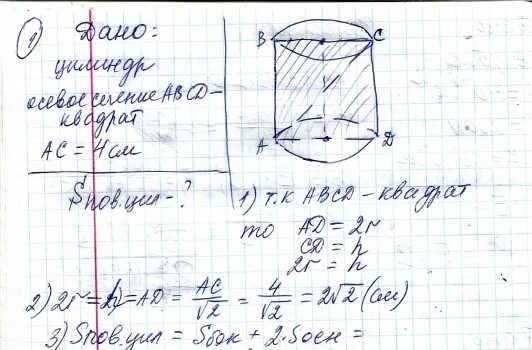 ① Дано:
цилиндр
осевое сечение ABCD –
квадрат
AC = 4 см
Sпов.цил - ?
B C
A D
1) т.к ABCD – квадрат
то AD = 2r
CD = h
2r = h
2) 2r = h = AD = AC/√2 = 4/√2 = 2√2 (см)
3) Sпов.цил = Sбок + 2·Sосн =